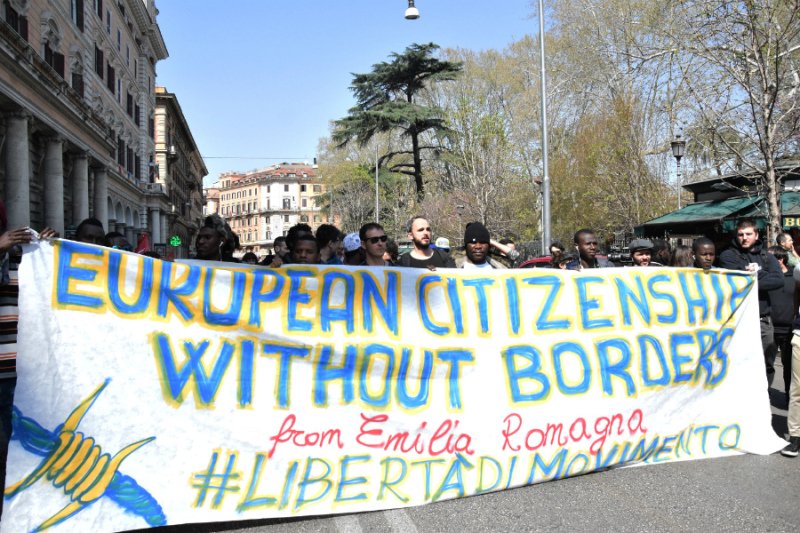 EUROPEAN CITIZENSHIP
WITHOUT BORDERS
from Emilia Romagna
#LIBERTÀDIMOVIMENTO